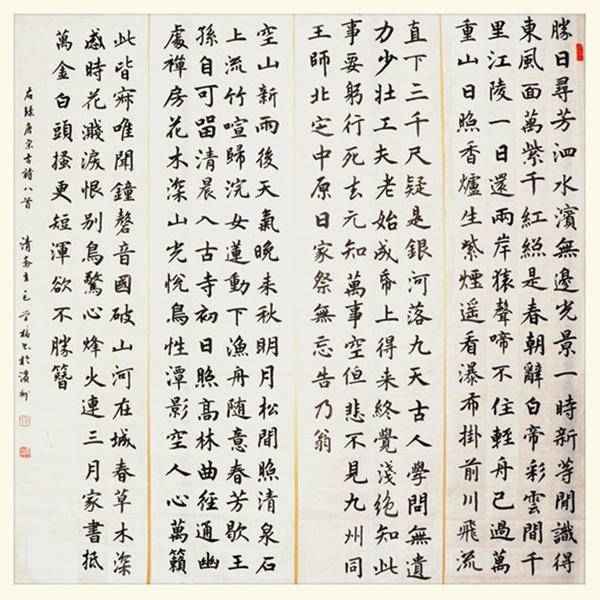 勝日尋芳泗水濱無邊光景一時新等閒識得
東風面萬紫千紅總是春朝辭白帝彩雲間千
里江陵一日還兩岸猿聲啼不住輕舟已過萬
重山日照香爐生紫煙遙看瀑布掛前川飛流
直下三千尺疑是銀河落九天古人學問無遺
力少壯工夫老始成帋上得来終覺淺絕知此
事要躬行死去元知萬事空但悲不見九州同
王師北定中原日家祭無忘告乃翁
空山新雨後天氣晚来秋明月松間照清泉石
上流竹喧歸浣女蓮動下漁舟隨意春芳歇王
孫自可留清晨入古寺初日照高林曲徑通幽
處禪房花木深山光悅鳥性潭影空人心萬籟
此皆寂唯聞鐘磬音國破山河在城春草木深
感時花濺淚恨別鳥驚心烽火連三月家書抵
萬金白頭搔更短渾欲不勝簪
右錄唐宋古詩八首